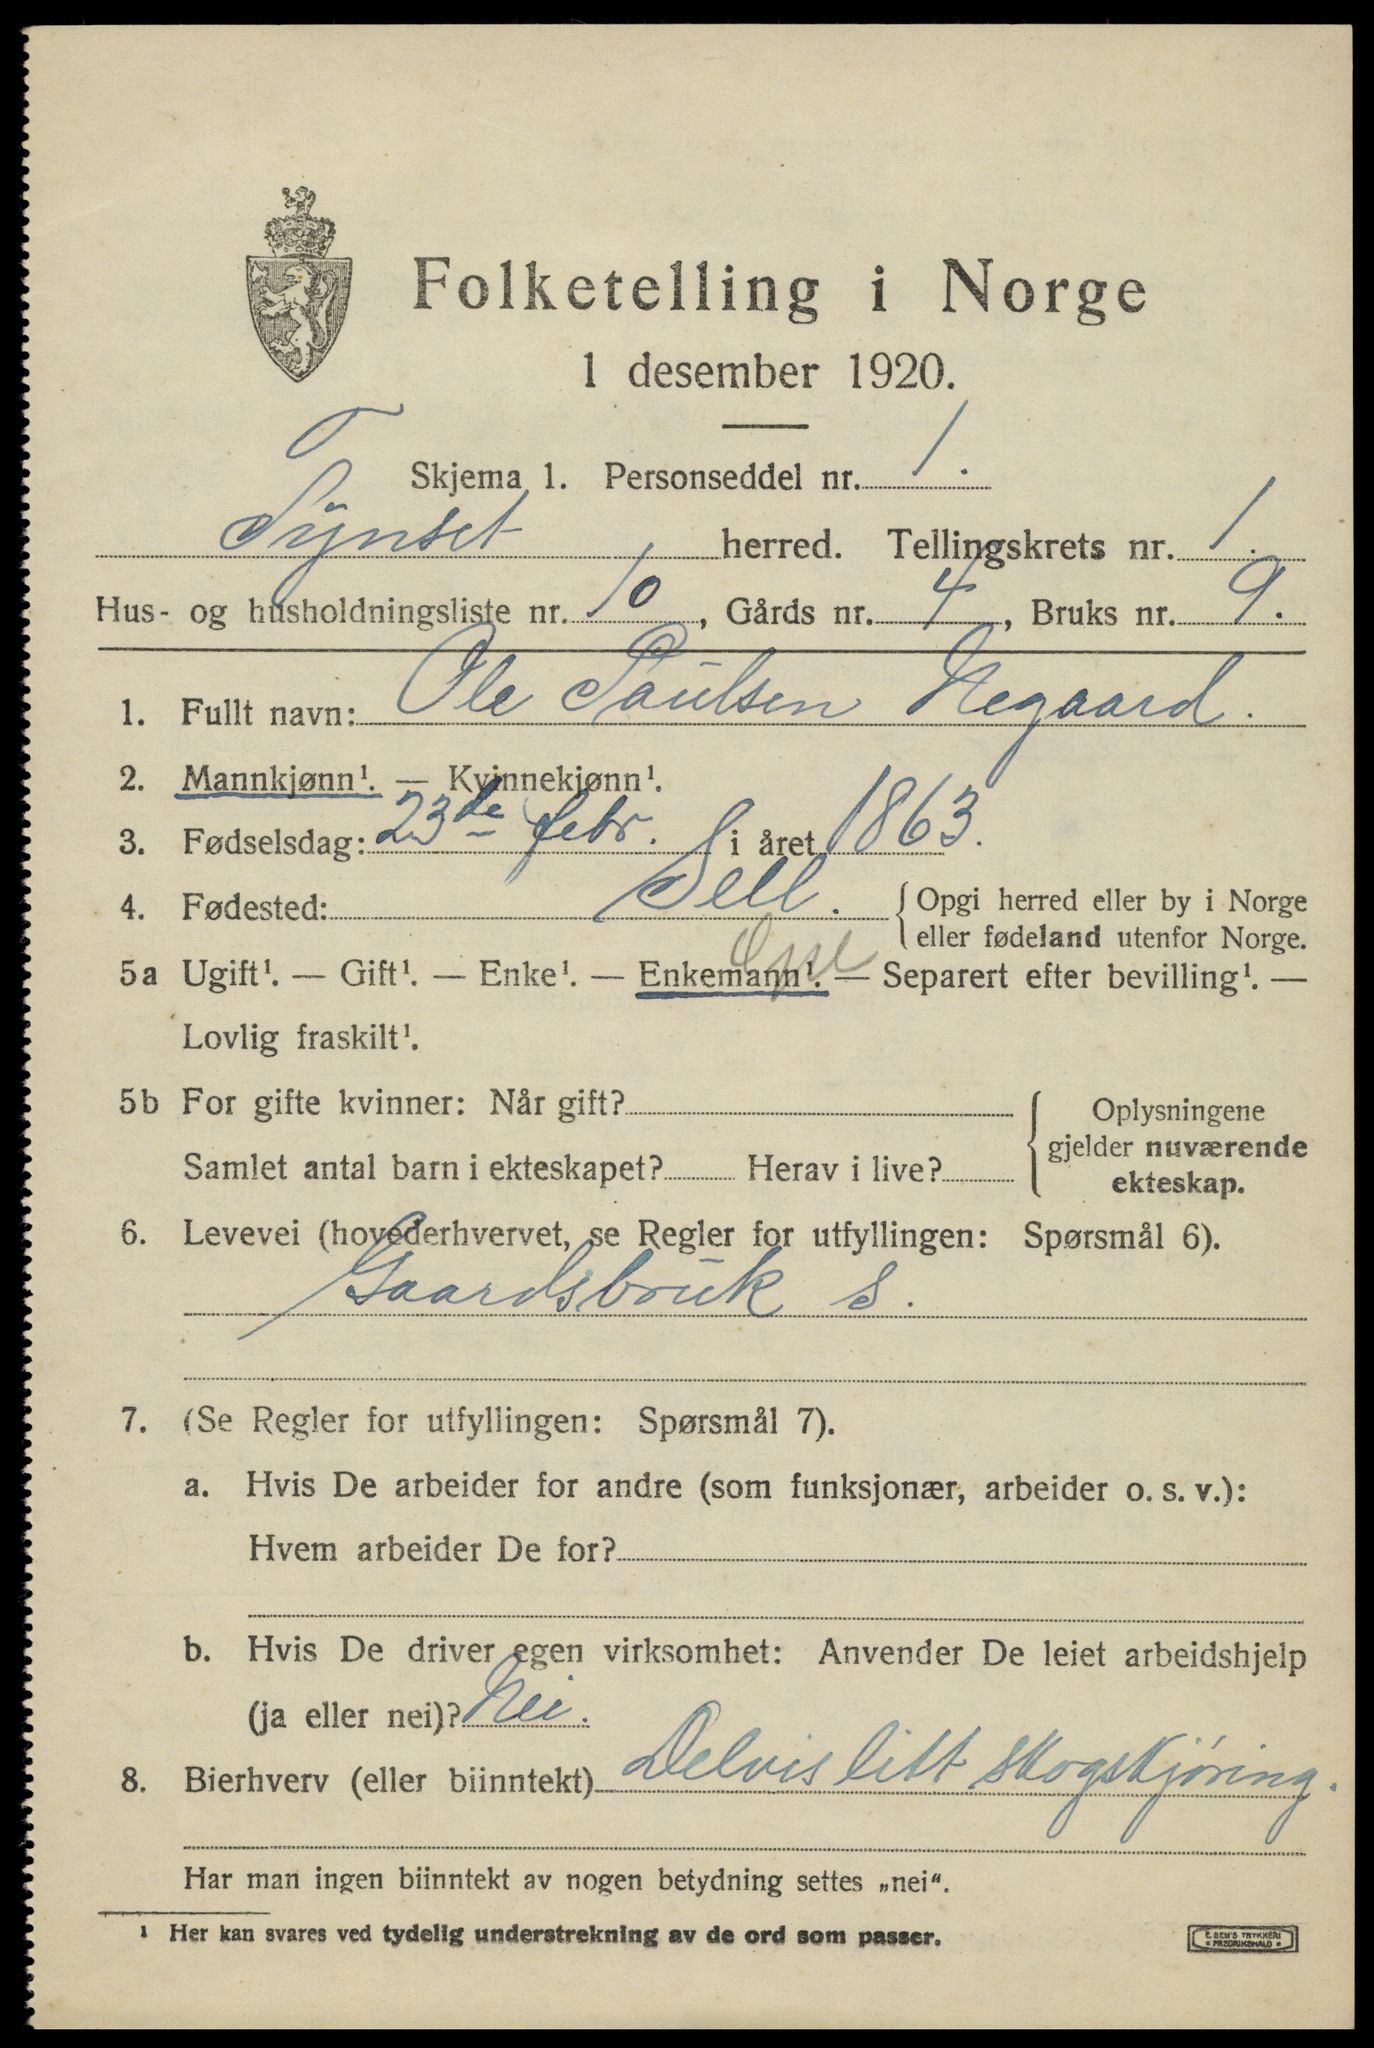 Folketelling i Norge
1 desember 1920.
Skjema 1. Personseddel nr. 1.
Tynset herred. Tellingskrets nr. 1.
Hus- og husholdningsliste nr. 10, Gårds nr. 4, Bruks nr. 9.
1. Fullt navn: Ole Paulsen Negaard.
2. Mannkjønn¹. — Kvinnekjønn¹.
3. Fødselsdag: 23de febr. i året 1863.
4. Fødested: Sell. { Opgi herred eller by i Norge
eller fødeland utenfor Norge.
5a Ugift¹. — Gift¹. — Enke¹. — Enkemann¹. — Separert efter bevilling¹. —
Lovlig fraskilt¹.
5b For gifte kvinner: Når gift? { Oplysningene
gjelder nuværende
Samlet antal barn i ekteskapet? Herav i live?
ekteskap.
6. Levevei (hovederhvervet, se Regler for utfyllingen: Spørsmål 6).
Gaardsbruk s.
7. (Se Regler for utfyllingen: Spørsmål 7).
a. Hvis De arbeider for andre (som funksjonær, arbeider o. s. v.):
Hvem arbeider De for?
b. Hvis De driver egen virksomhet: Anvender De leiet arbeidshjelp
(ja eller nei)? Nei.
8. Bierhverv (eller biinntekt) Delvis litt skogskjøring.
Har man ingen biinntekt av nogen betydning settes „nei“.
¹ Her kan svares ved tydelig understrekning av de ord som passer.
E. SEM'S TRYKKERI
• FREDRIKSHALD •